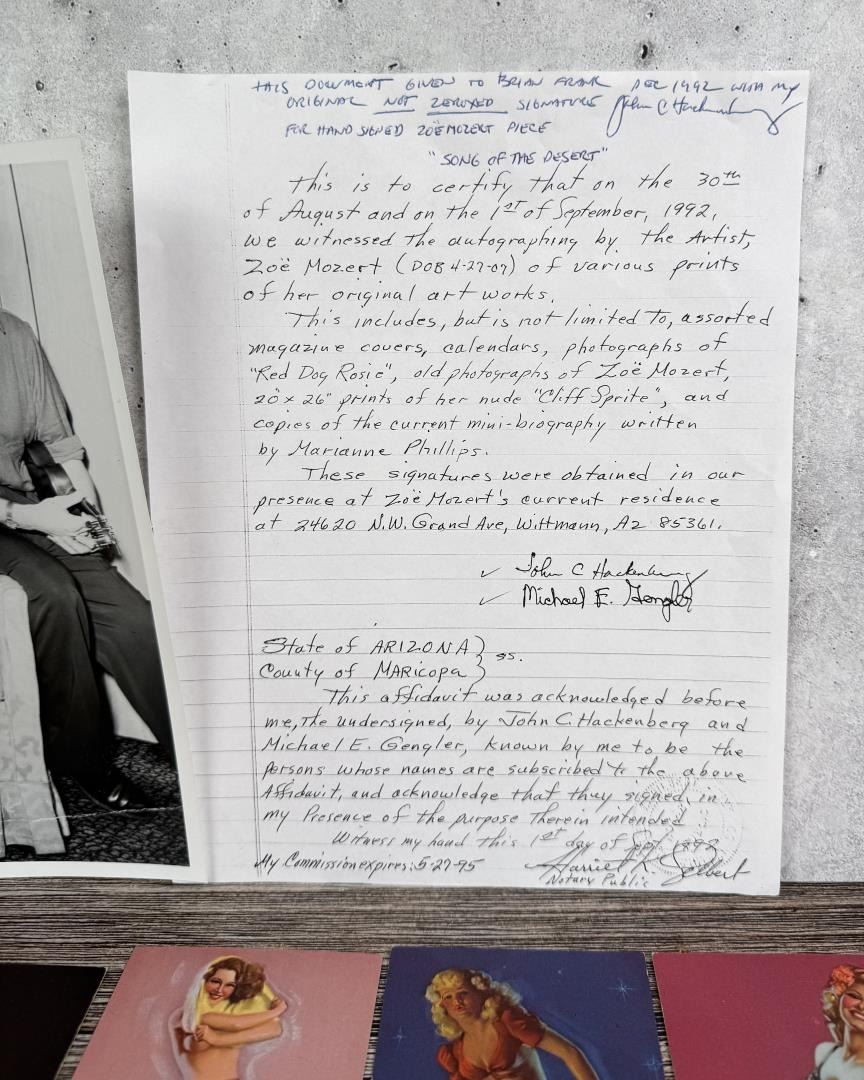 THIS DOCUMENT GIVEN TO BRIAN FRANK DEC 1992 WITH MY
ORIGINAL NOT ZEROXED SIGNATURE John C Hackenberg
FOR HAND SIGNED ZOË MOZERT PIECE
"SONG OF THE DESERT"
This is to certify that on the 30th
of August and on the 1ST of September, 1992,
we witnessed the autographing by the Artist,
Zoë Mozert (DOB 4-27-07) of various prints
of her original art works.
This includes, but is not limited to, assorted
magazine covers, calendars, photographs of
"Red Dog Rosie", old photographs of Zoë Mozert,
20" x 26" prints of her nude "Cliff Sprite", and
copies of the current mini-biography written
by Marianne Phillips.
These signatures were obtained in our
presence at Zoë Mozert's current residence
at 24620 N.W. Grand Ave, Wittmann, AZ 85361.
✓ John C Hackenberg
✓ Michael E. Gengler
State of ARIZONA )
County of MARICOPA ) ss.
This affidavit was acknowledged before
me, the undersigned, by John C. Hackenberg and
Michael E. Gengler, known by me to be the
persons whose names are subscribed to the above
Affidavit, and acknowledge that they signed in
my Presence of the purpose Therein intended
Witness my hand this 1st day of Sept. 1992
My Commission expires: 5-27-95
Notary Public